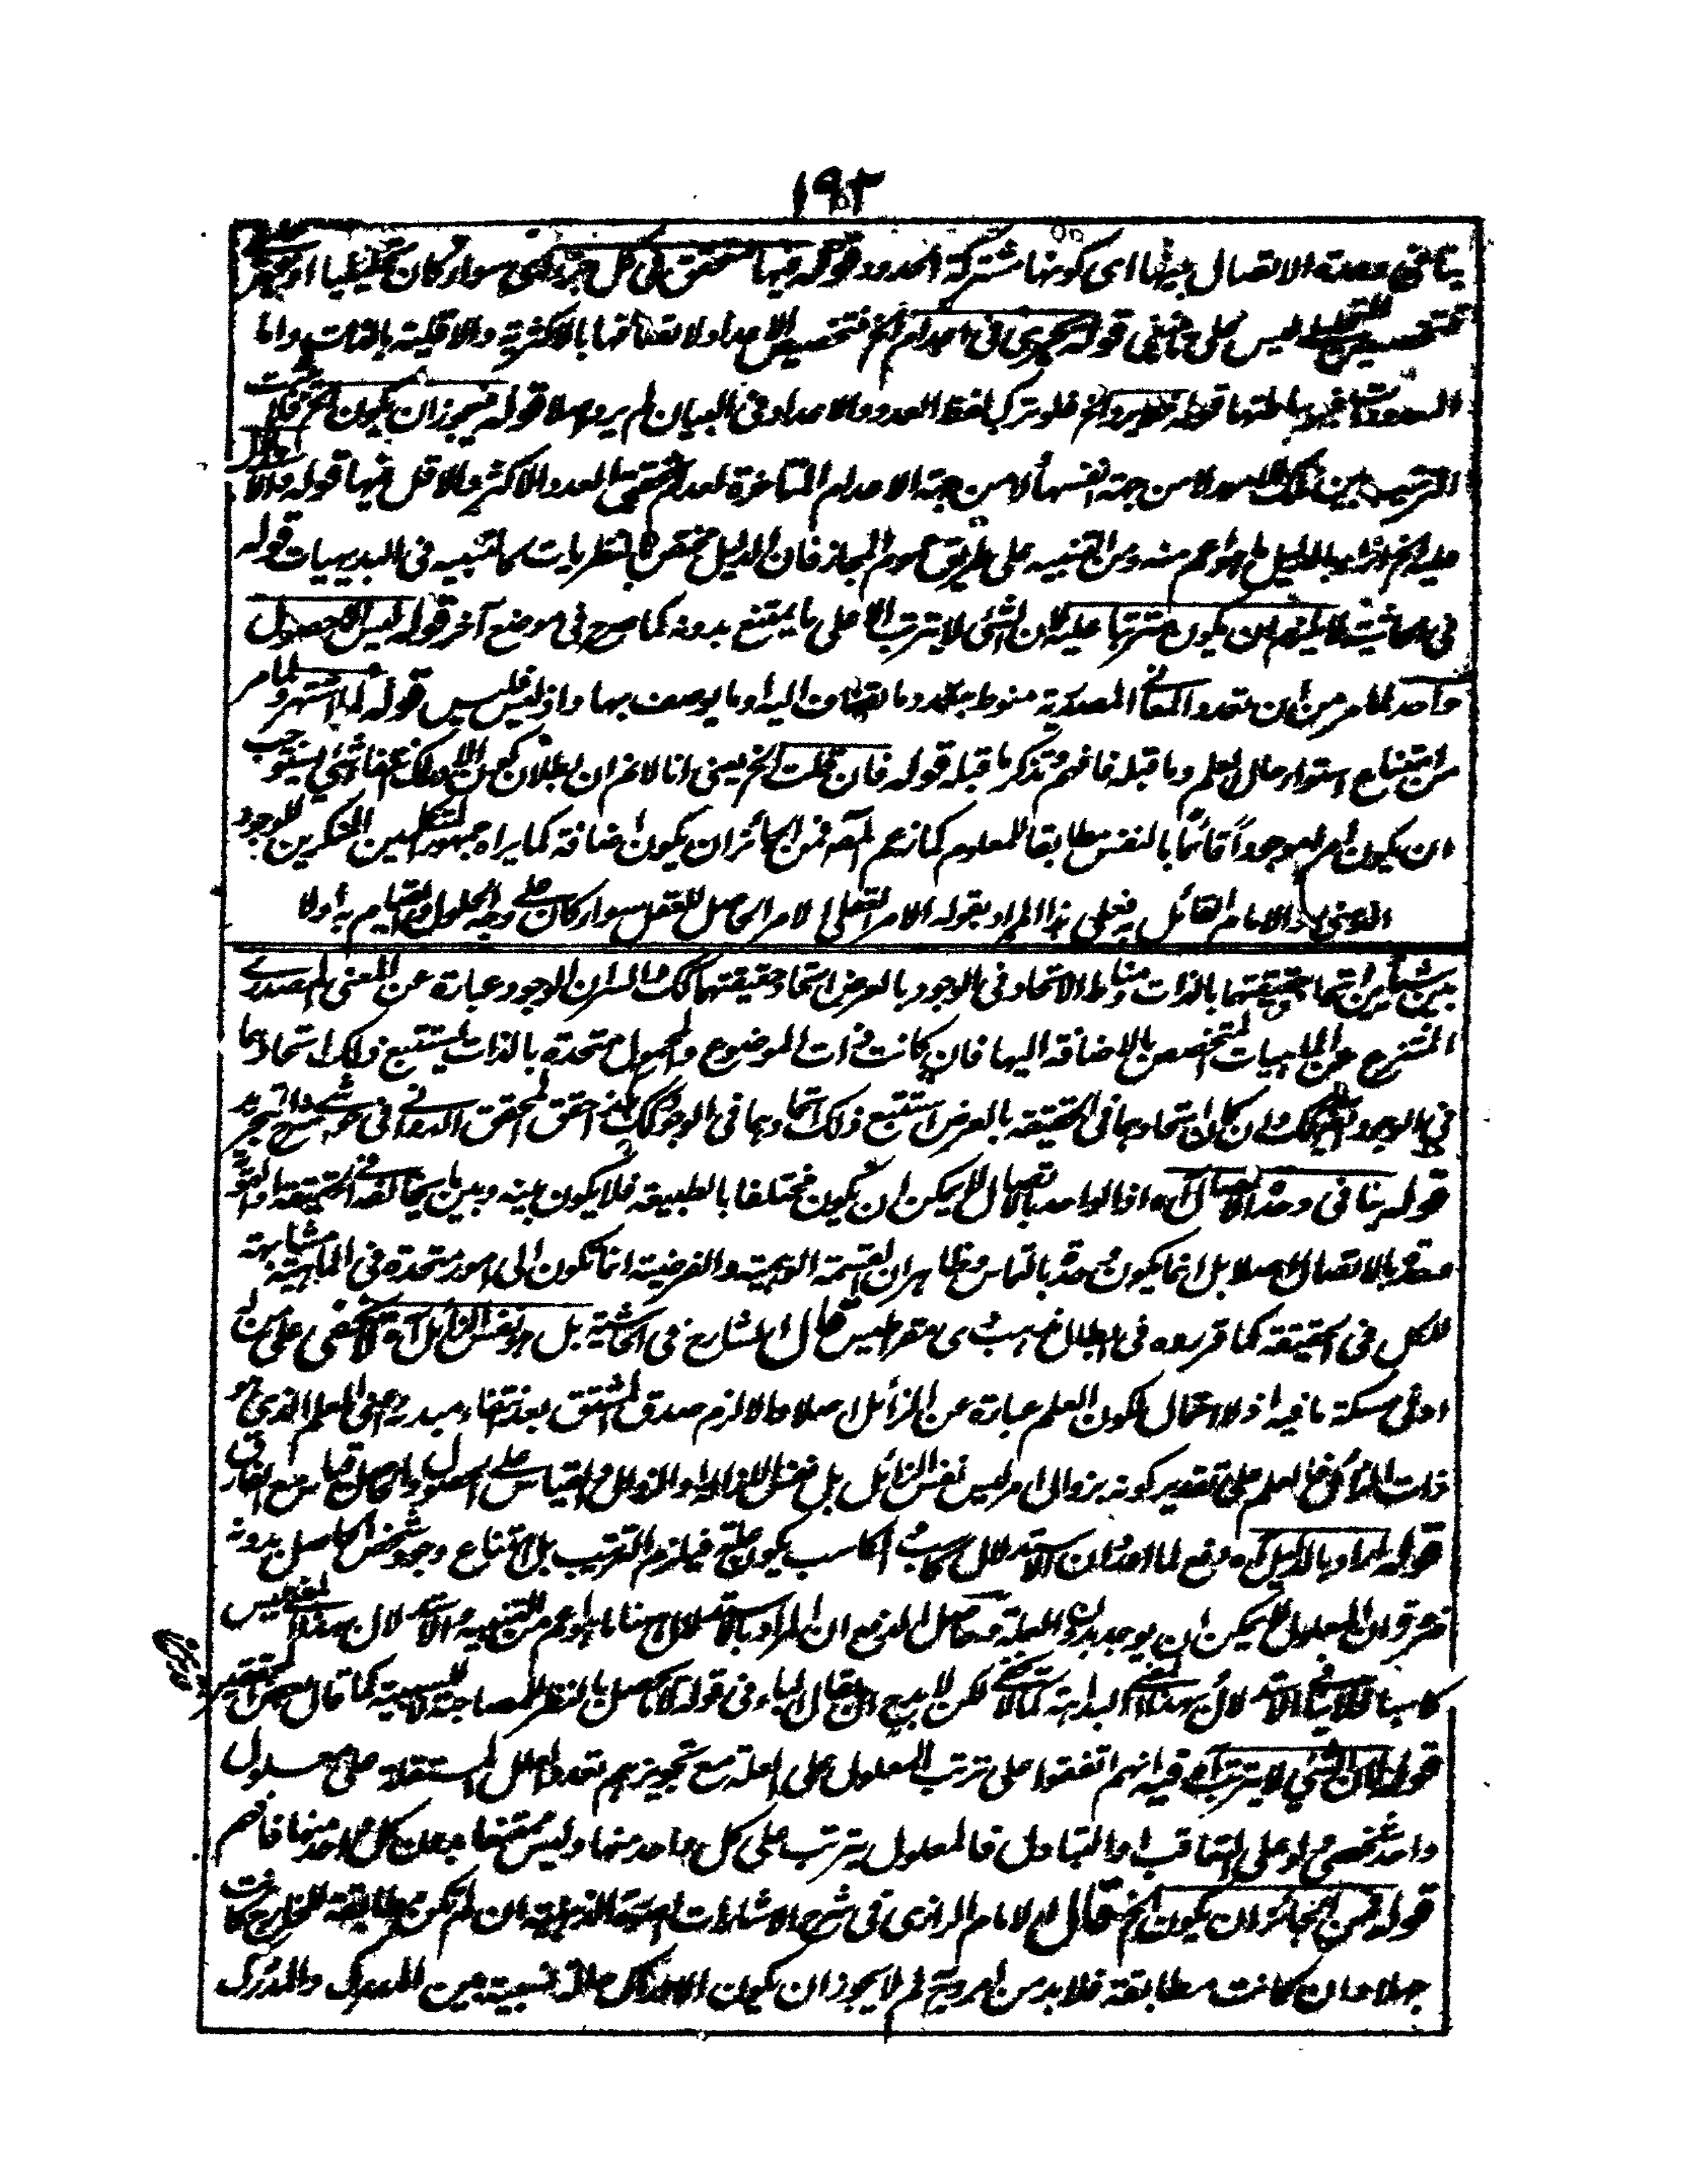 ١٩٣
ينافي وحدة الاتصال بينها اى كونها مشتركة الحدود قوله فيها متحقق في كل جزء اى سواء كان
ليس على ما ينبغى قوله يجرى في اعدام الخ فتخصيص الاعداد لاتصافها بالاكثرية والاقلية بالذات واما
قوله الخ فلو ترك لفظ العدد والاعداد في البيان لم يرد اصلا قوله فيجوز ان يكون الخ
بين تلك لا من جهة انفسها لا من جهة الاعدام المتاخرة لعدم تحقق العدد الاكثر والاقل فيها قوله والا
عليه الخ اراد بالدليل ما هو اعم منه ومن التنبيه على طريق عموم المجاز فان الدليل مختص بالنظريات كما التنبيه في البديهيات قوله
في الحاشية لا يلزم ان يكون مترتبا عليه لان الشئ لا يترتب الا على ما يمتنع بدونه كما صرح في موضع آخر قوله ليس الا حصول
واحد لما مر من ان تعدد المعانى المصدرية منوط بتعدد ما تضاف اليه او ما يوصف بها واذ ليس فليس قوله لما اشتهر ولما مر
من امتناع استواء حال العلم وما قبله فافهم وتذكر ما قبله قوله فان قلت الخ يعنى انا لا نم ان بطلان كون الادراك يستوجب
ان يكون امرا موجودا قائما بالنفس مطابقا للمعلوم كما زعم المص فمن الجائز ان يكون اضافة كما يراه جمهور المتكلمين المنكرين للوجود
الذهنى والامام القائل به فعلى هذا المراد بقوله الامر العقلى الامر الحاصل للعقل سواء كان على وجه الحلول والقيام به اولا
بين شيئين اتحاد حقيقتهما بالذات ومناط الاتحاد في الوجود بالعرض اتحاد حقيقتهما كك والسر ان الوجود عبارة عن المعنى المصدرى
المنتزع عن الماهيات المتخصص بالاضافة اليها فان كانت ذات الموضوع والمحمول متحدة بالذات يستتبع ذلك اتحادهما
في الوجود كك وان كان اتحادهما في الحقيقة بالعرض استتبع ذلك اتحادهما في الوجود كك هذا حقق المحقق الدوانى في حواشى شرح التجريد
قوله ينافي وحدة الاتصال آه اذ الواحد بالاتصال لا يمكن ان يكون مختلفا بالطبيعة فلا يكون بينه وبين ما يخالفه في الحقيقة
وحدة بالاتصال اصلا بل انما يكون وحدة بالتماس وظاهر ان القسمة الوهمية والفرضية انما تكون الى امور متحدة في الماهية مشابهة
للكل في الحقيقة كما قرروه في ابطال مذهب ذى مقراطيس قال الشارح في الحاشية بل هو نفس الزائل آه لا يخفى على من له
ادنى مسكة ما فيه اذ لا احتمال لكون العلم عبارة عن الزائل اصلا والا لزم صدق المشتق بعد انتفاء مبدئه اعنى العلم الذى هو
ذات الزائل فالعلم على تقدير كونه بزوال امر ليس نفس الزائل بل نفس الازالة او الزوال والقياس على الحصول والحاصل قياس مع الفارق
قوله المراد بالدليل آه دفع لما اورد ان الاستدلال كاسب الكاسب يكون علة فيلزم التقريب بل امتناع وجود شخص الحاصل بدونه
ضرورة ان المعلول لا يمكن ان يوجد بدون العلة وحاصل الدفع ان المراد بالاستدلال ههنا ما هو اعم من التنبيه والاستدلال بهذا المعنى ليس
كاسبا فلا ينافي الاستدلال بهذا المعنى البداهة كما لا يخفى لكن لا بد ح ان يقال الباء في قوله لا يحصل بالنظر للمصاحبة لا للسببية كما قال بعض المحققين
قوله لان الشئ لا يترتب آه فيه انهم اتفقوا على ترتب المعلول على العلة مع تجويزهم تعدد العلل المستقلة على معلول
واحد شخصى ولو على التعاقب او التبادل فالمعلول يترتب على كل واحد منها وليس ممتنعا بدون كل واحد منها فافهم
قوله فمن الجائز ان يكون الخ قال الامام الرازى في شرح الاشارات الصورة الذهنية ان لم تكن مطابقة للخارج كانت
جهلا وان كانت مطابقة فلا بد من امر خارج فلم لا يجوز ان يكون الادراك حالة نسبية بين المدرك والمدرك